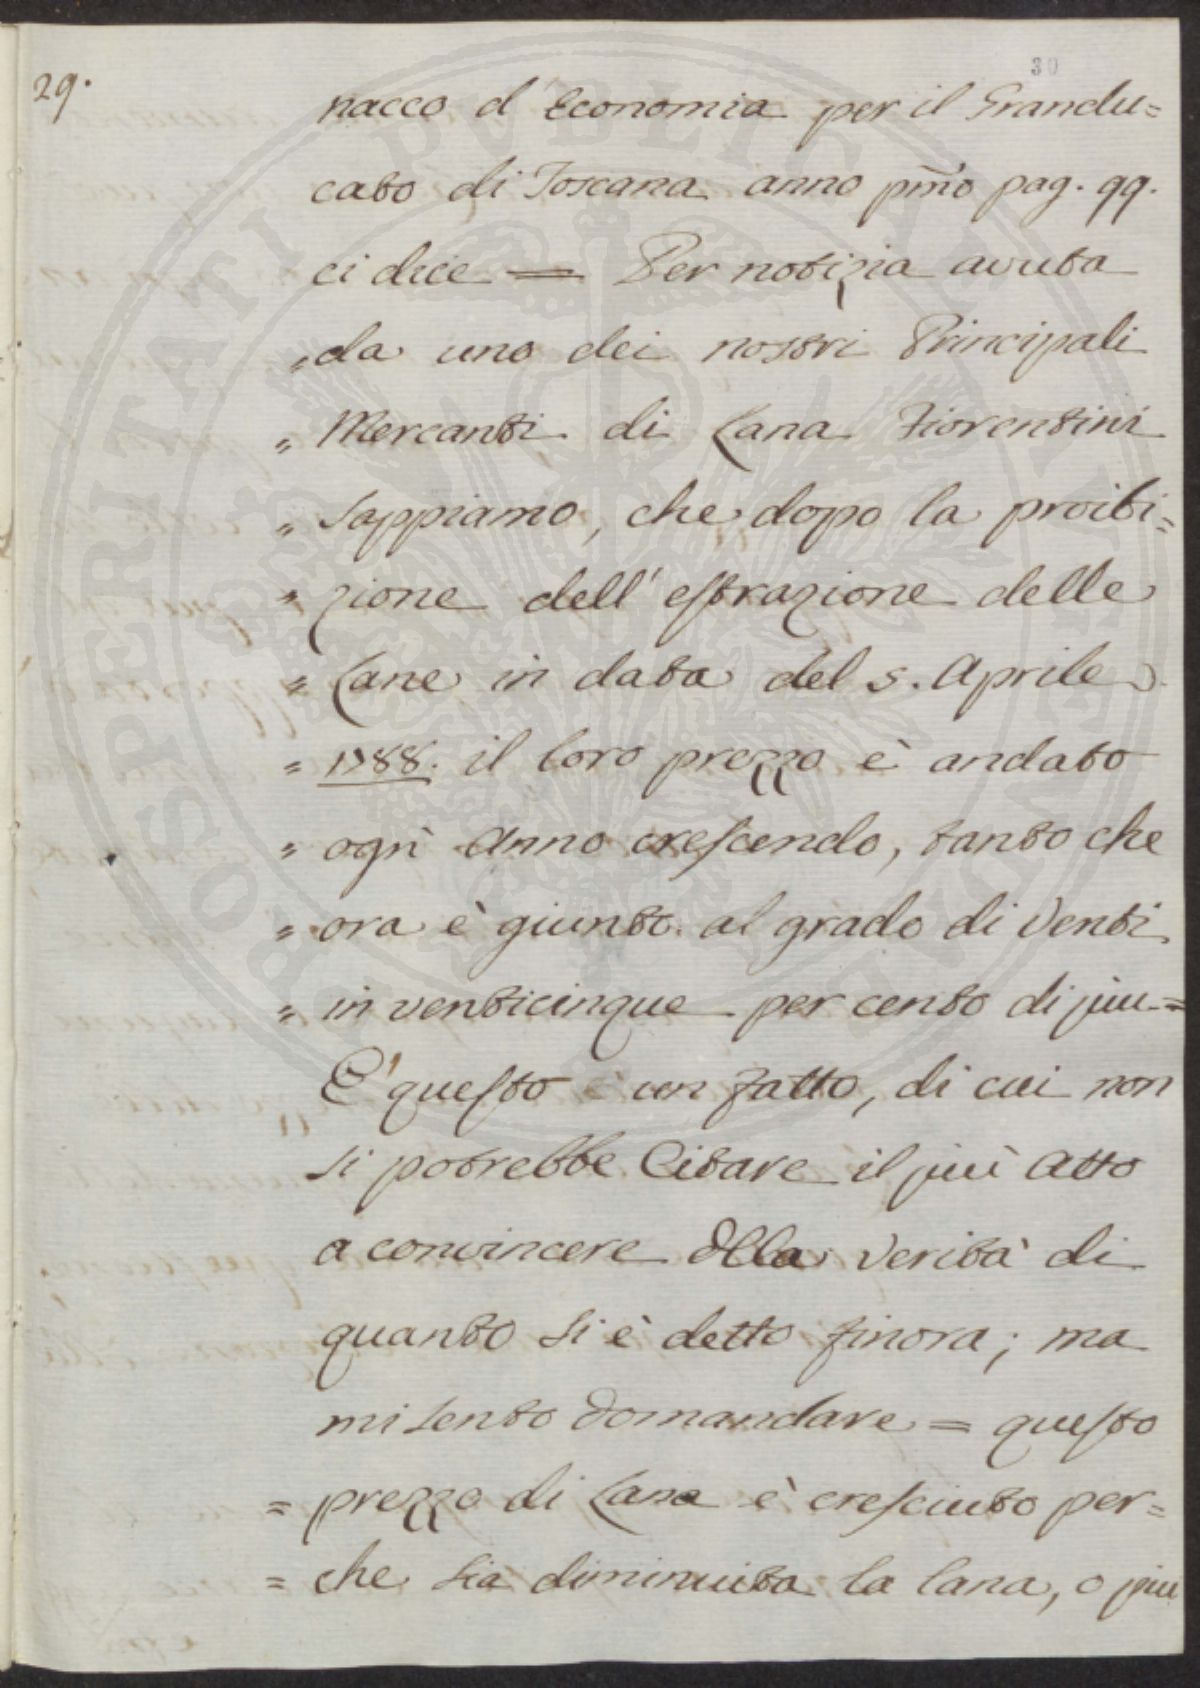 29.
30
nacco d'Economia per il Grandu=
cato di Toscana anno pmo pag. 99.
ci dice = Per notizia avuta
„ da uno dei nostri Principali
„ Mercanti di Lana Fiorentini
„ sappiamo, che dopo la proibi=
„ zione dell'estrazione delle
„ Lane in data del 5. Aprile
= 1788. il loro prezzo è andato
„ ogni anno crescendo, tanto che
„ ora è giunto al grado di Venti
„ in venticinque per cento di piu=
E' questo un fatto, di cui non
si potrebbe Citare il più atto
a convincere della Verità di
quanto si è detto finora; ma
mi sento domandare = questo
= prezzo di Lana è cresciuto per=
= che sia diminuita la lana, o piu
PROSPERITATI PVBLICAE AVGENDAE